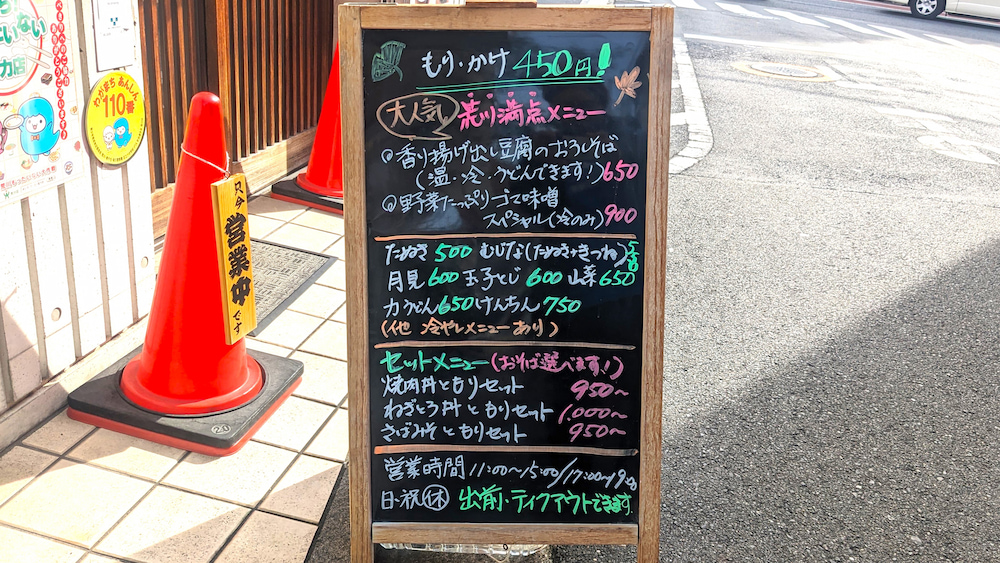 もり・かけ 450円!
大人気 荒川満点メニュー
◎香り揚げ出し豆腐のおろしそば
(温・冷・うどんできます!)650
◎野菜たっぷりゴマ味噌
スペシャル(冷のみ)900
たぬき 500 むじな(たぬき・きつね)550
月見 600 玉子とじ 600 山菜 650
力うどん 650 けんちん 750
(他 冷やしメニューあり)
セットメニュー(おそば選べます!)
焼肉丼ともりセット 950~
ねぎとろ丼ともりセット 1,000~
さばみそともりセット 950~
営業時間 11:00~15:00/17:00~19:00
日・祝休 出前・テイクアウトできます
只今
営業中
です
わがまち あんしん
110番